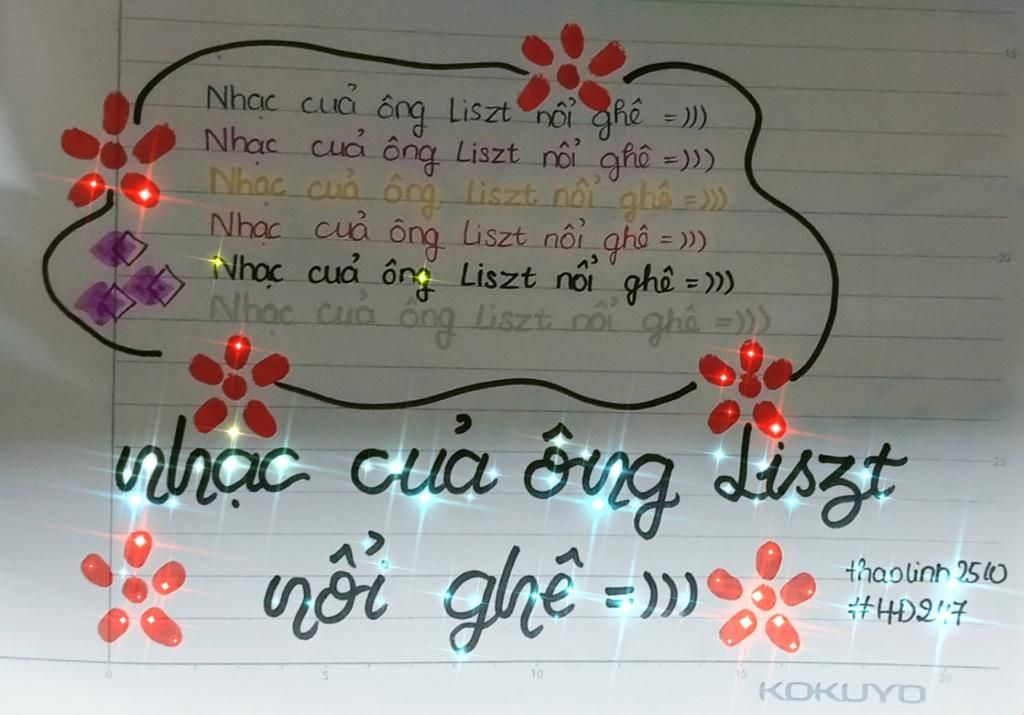 Nhạc cuả ông Liszt nổi ghê =)))
Nhạc cuả ông Liszt nổi ghê =)))
Nhạc cuả ông Liszt nổi ghê =)))
Nhạc cuả ông Liszt nổi ghê =)))
Nhạc cuả ông Liszt nổi ghê =)))
Nhạc cuả ông Liszt nổi ghê =)))
nhạc của ông Liszt
nổi ghê =)))
thaolinh2510
#HD247
15
20
25
0 5 10 15 20
KOKUYO